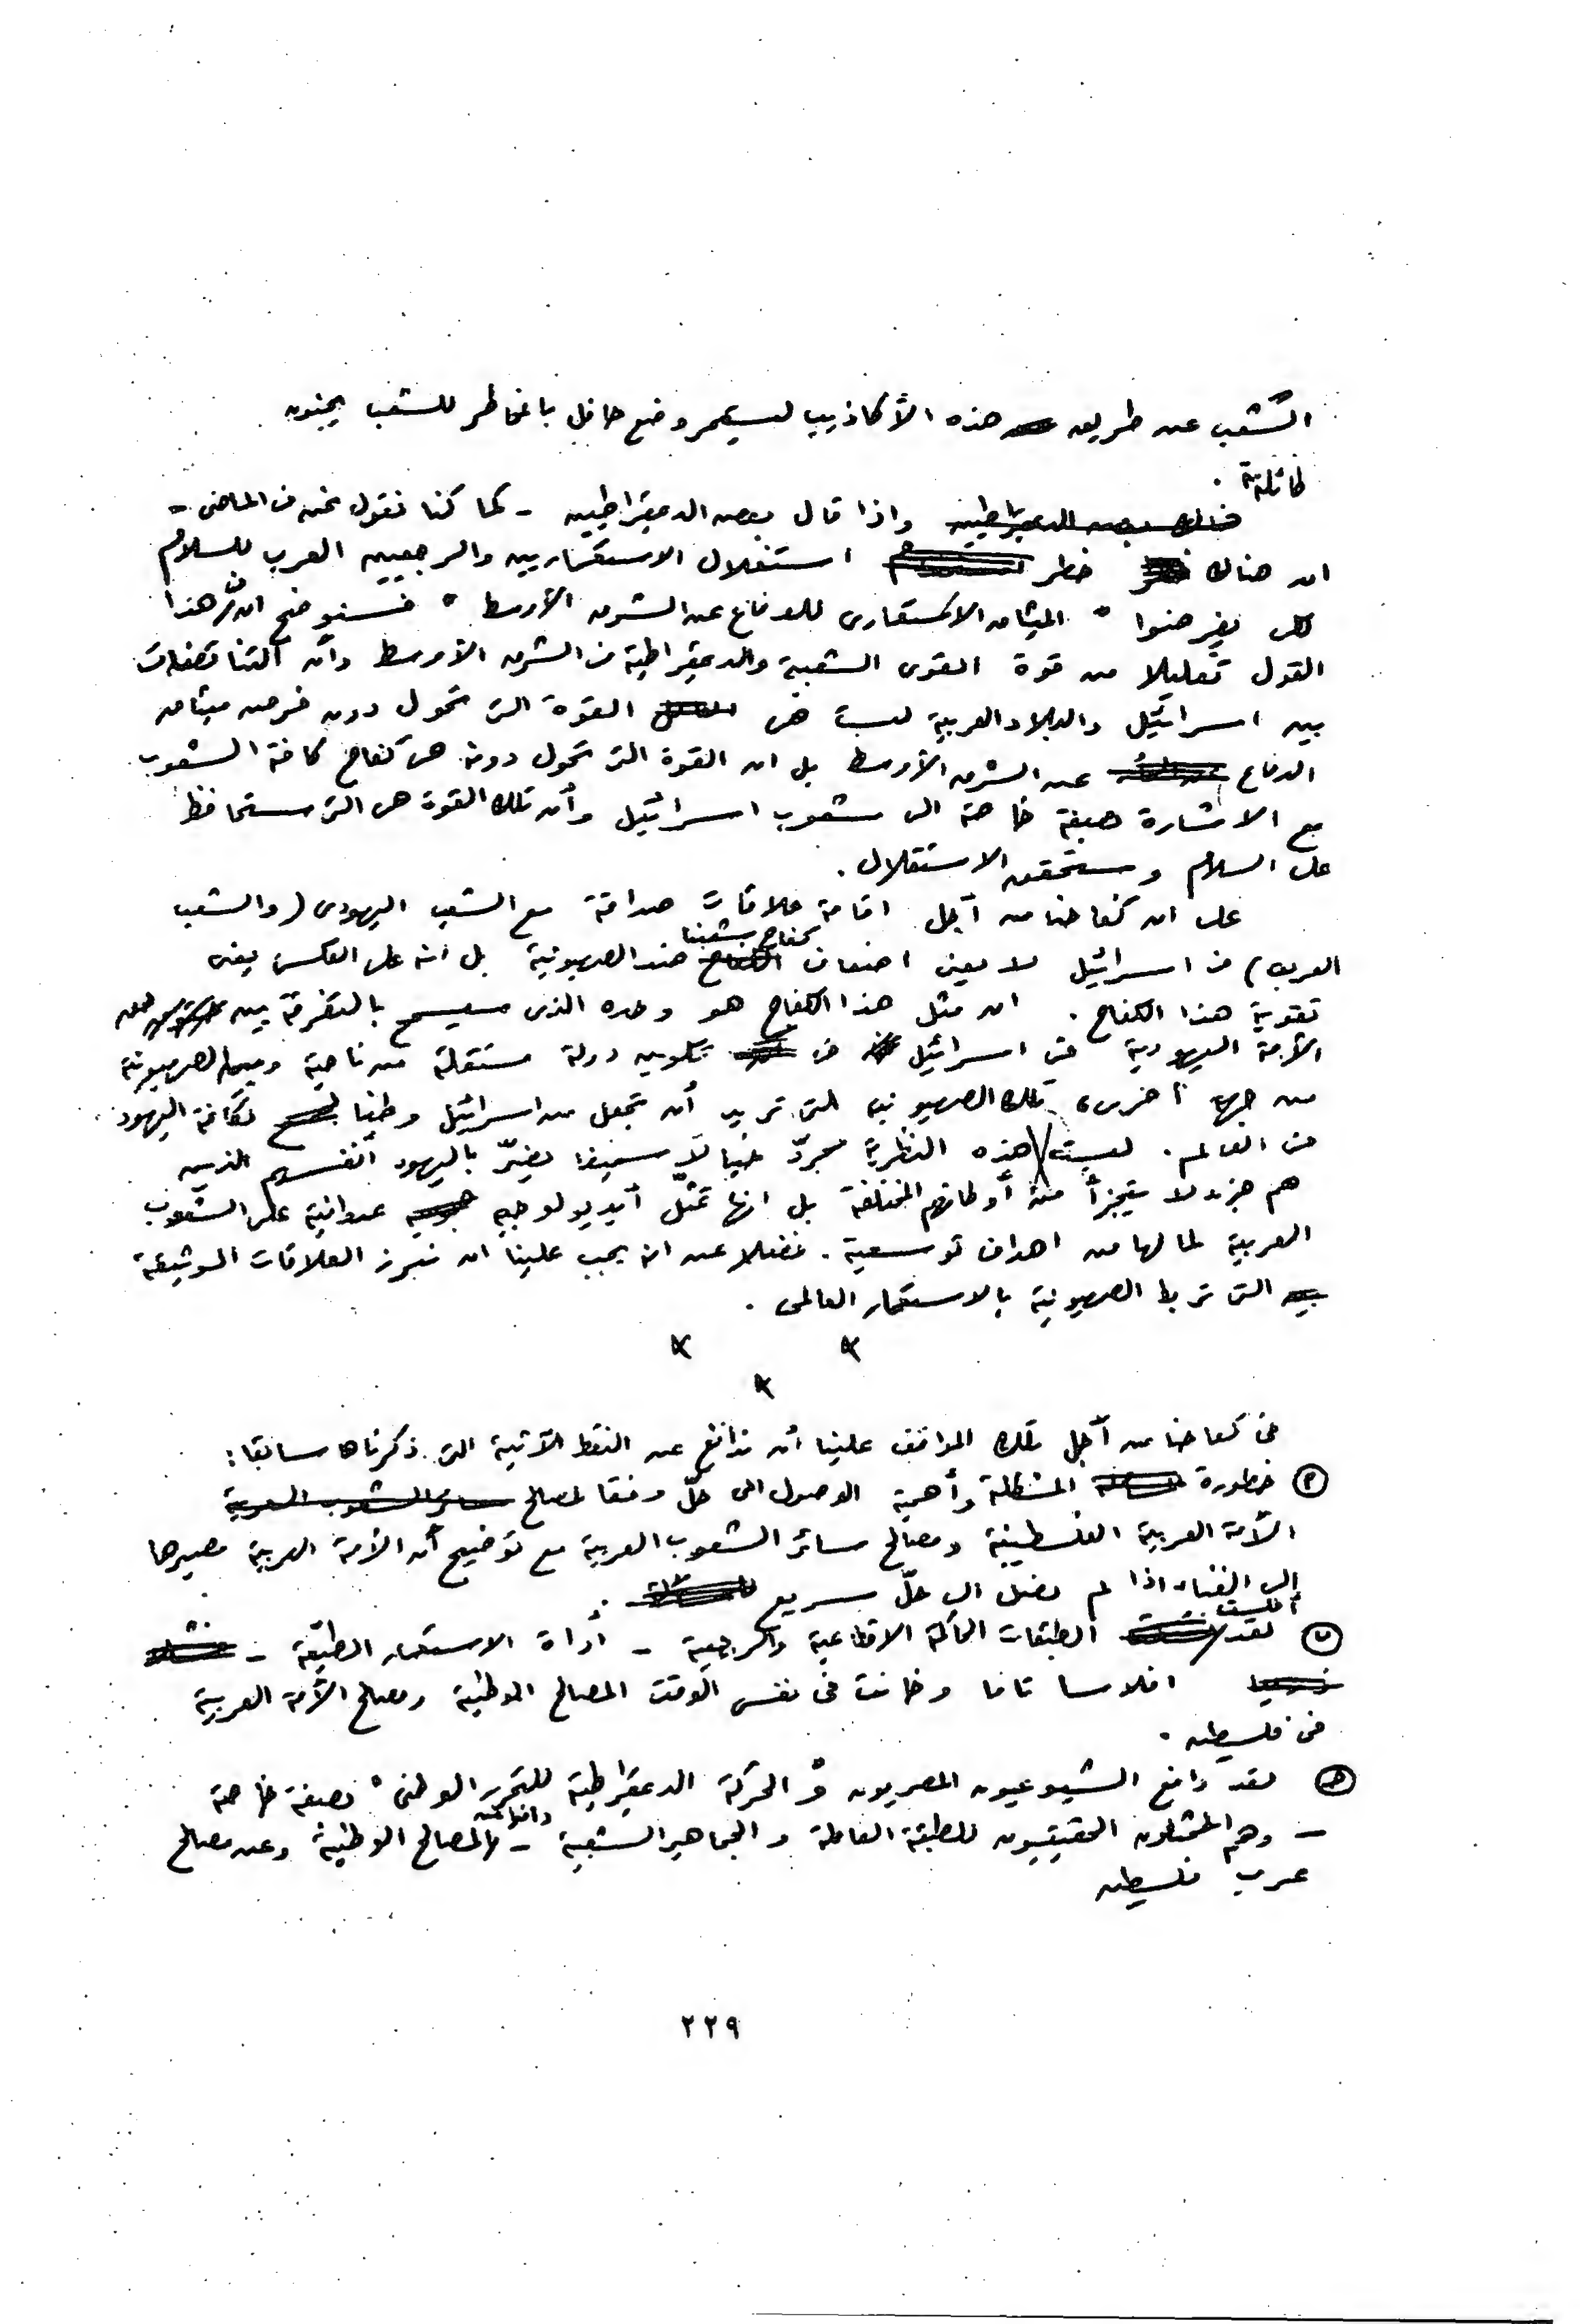 الشعب عن طريق هذه الأكاذيب ليستمر وضع حافل بالمخاطر للشعب يجنون
طائلة .
واذا قال بعض الديمقراطيين - كما كنا نقول نحن فى الماضى -
ان هناك خطر استغلال الاستعماريين والرجعيين العرب للسلام
لكى يفرضوا " الميثاق الاستعمارى للدفاع عن الشرق الأوسط " فسنوضح ان فى هذا
القول تقليلا من قوة القوى الشعبية والديمقراطية فى الشرق الأوسط وأن التناقضات
بين اسرائيل والبلاد العربية ليست هى القوة التى تحول دون فرض ميثاق
الدفاع عن الشرق الأوسط بل ان القوة التى تحول دونه هى كفاح كافة الشعوب
مع الاشارة بصفة خاصة الى شعوب اسرائيل وأن تلك القوة هى التى ستحافظ
على السلام وستحقق الاستقلال .
على ان كفاحنا من أجل اقامة علاقات صداقة مع الشعب اليهودى (والشعب
العربى) فى اسرائيل لا يعنى اضعاف كفاح شعبنا ضد الصهيونية بل انه على العكس يعنى
تقوية هذا الكفاح . ان مثل هذا الكفاح هو وحده الذى سيسمح بالتفرقة بين
الأمة اليهودية فى اسرائيل فى تكوين دولة مستقلة من ناحية وبين الصهيونية
من جهة أخرى، تلك الصهيونية التى تريد أن تجعل من اسرائيل وطنا لكافة اليهود
فى العالم . ليست هذه النظرية مجرّد خيالا سخيفا يضرّ باليهود أنفسهم الذين
هم جزء لا يتجزأ من أوطانهم المختلفة بل انها تمثّل أيديولوجيه عدوانية على الشعوب
العربية لما لها من اهداف توسعية . فضلا عن انه يجب علينا ان نبرز العلاقات الوثيقة
التى تربط الصهيونية بالاستعمار العالمى .
فى كفاحنا من أجل تلك المواقف علينا أن ندافع عن النقط الآتية التى ذكرناها سابقا :
خطورة المشكلة وأهمية الوصول الى حلّ وفقا لمصالح
الأمة العربية الفلسطينية ومصالح سائر الشعوب العربية مع توضيح أن الأمة العربية مصيرها
إلى الفناء اذا لم نصل الى حلّ سريع .
لقد أفلست الطبقات الحاكمة الاقطاعية والرجعية - أداة الاستعمار الطيّعة -
افلاسا تاما وخانت فى نفس الوقت المصالح الوطنية ومصالح الأمة العربية
فى فلسطين .
لقد دافع الشيوعيون المصريون و " الحركة الديمقراطية للتحرر الوطنى " بصفة خاصة
- وهم الممثلون الحقيقيون للطبقة العاملة والجماهير الشعبية - دافعوا عن المصالح الوطنية وعن مصالح
عرب فلسطين
٢٢٩